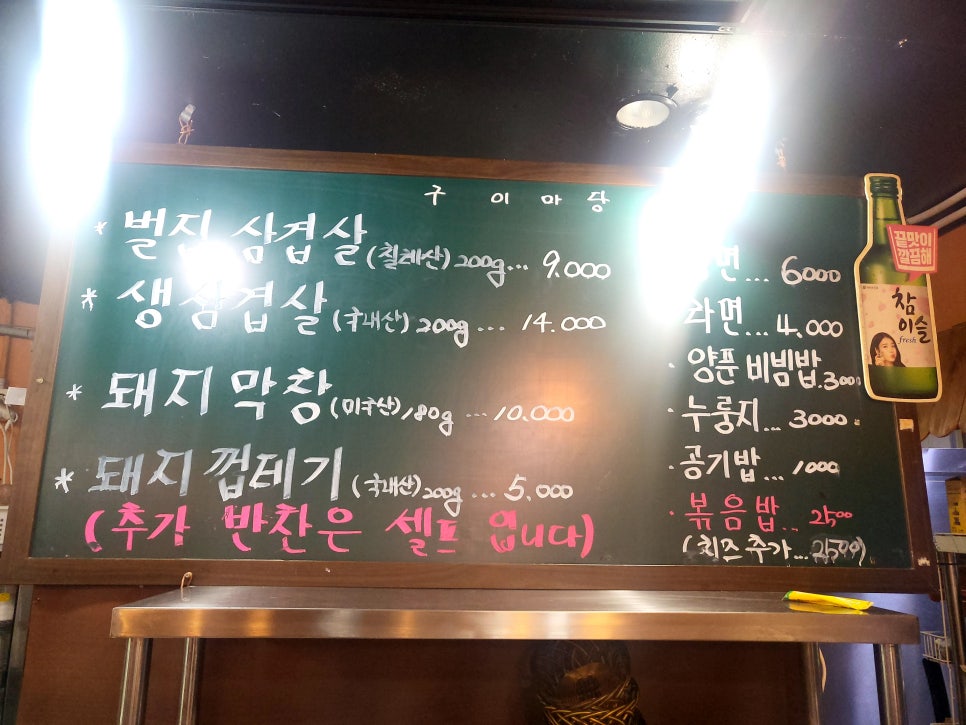 구이마당
* 벌집 삼겹살 (칠레산) 200g... 9.000
* 생삼겹살 (국내산) 200g ... 14.000
* 돼지막창 (미국산) 180g ... 10.000
* 돼지껍데기 (국내산) 200g ... 5.000
(추가 반찬은 셀프 입니다)
면... 6000
라면... 4,000
· 양푼 비빔밥. 3000
· 누룽지... 3000
· 공기밥... 1000
· 볶음밥.. 2500
(치즈 추가... 2500)
끝맛이
깔끔해
참
이슬
fresh